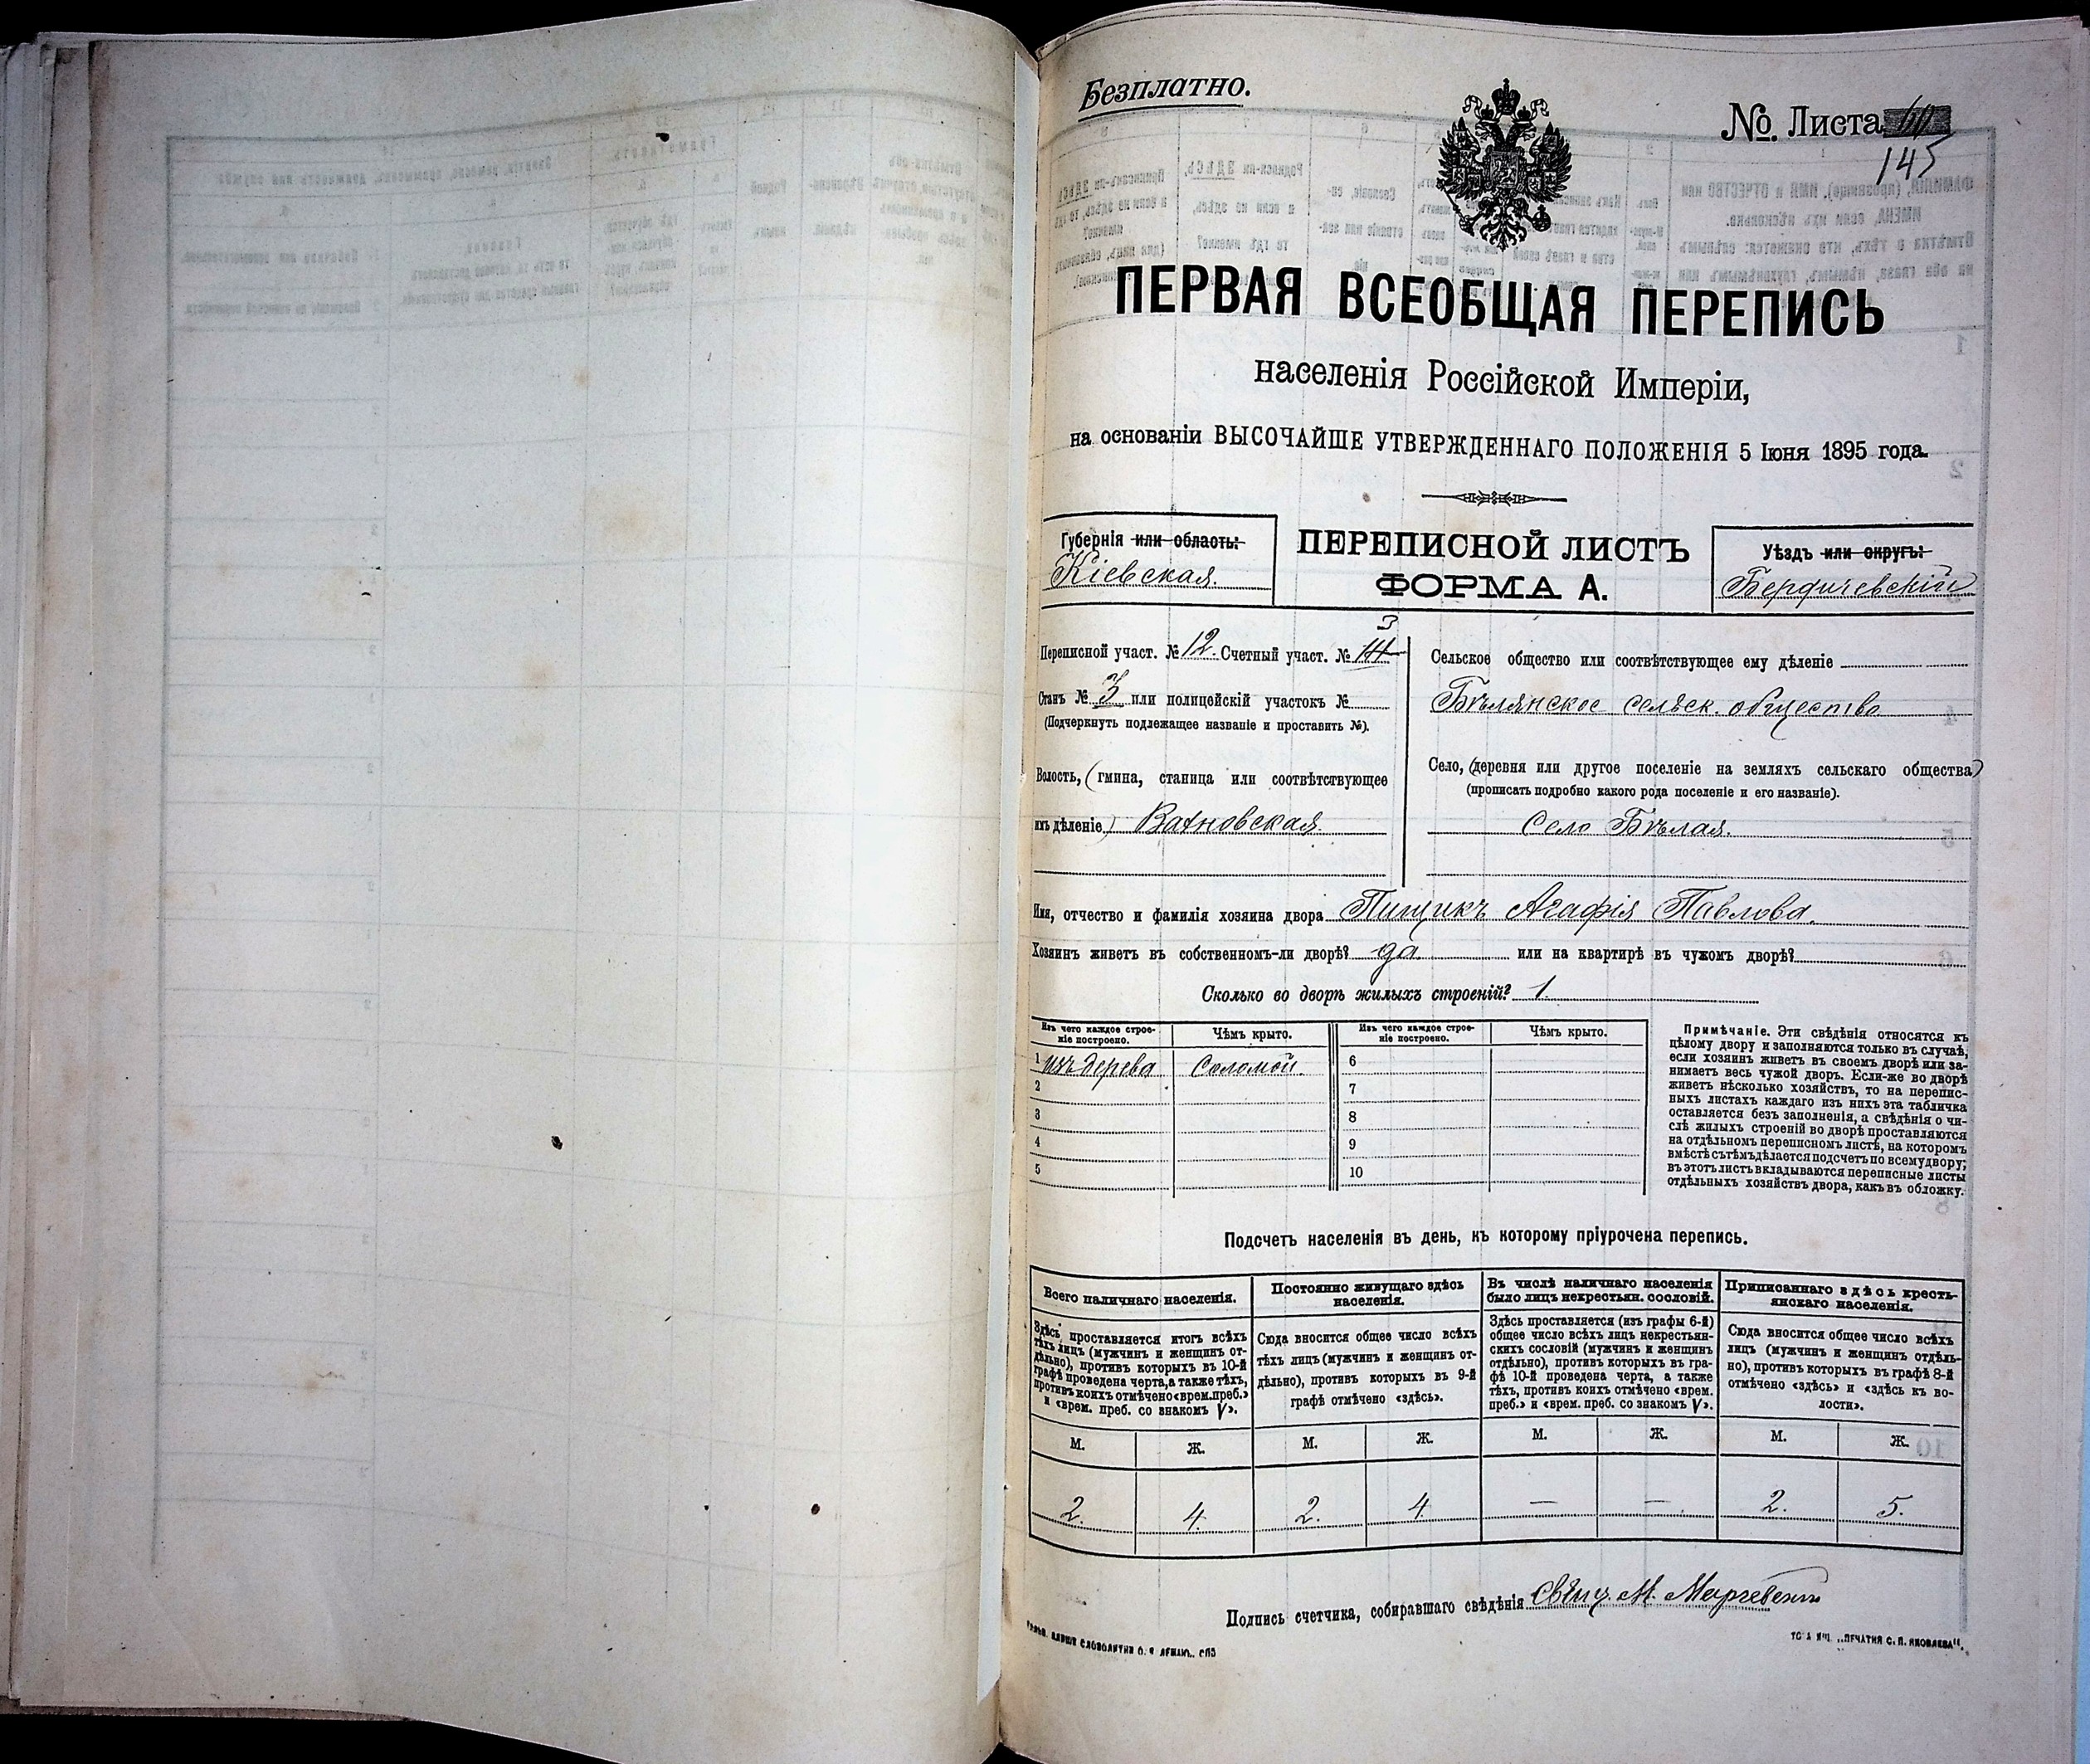 Безплатно.
№. Листа
145
ПЕРВАЯ ВСЕОБЩАЯ ПЕРЕПИСЬ
населенія Россійской Имперіи,
на основаніи ВЫСОЧАЙШЕ УТВЕРЖДЕННАГО ПОЛОЖЕНІЯ 5 Іюня 1895 года.
Губернія или область:
Кіевская.
ПЕРЕПИСНОЙ ЛИСТЪ
ФОРМА А.
Уѣздъ или округъ:
Бердичевскій
3
Переписной участ. № 12. Счетный участ. № 14
Станъ № 3 или полицейскій участокъ №
(Подчеркнуть подлежащее названіе и проставить №).
Волость, (гмина, станица или соотвѣтствующее
имъ дѣленіе) Вахновская.
Сельское общество или соотвѣтствующее ему дѣленіе
Бѣлянское сельск. общество
Село, (деревня или другое поселеніе на земляхъ сельскаго общества)
(прописать подробно какого рода поселеніе и его названіе).
Село Бѣлая.
Имя, отчество и фамилія хозяина двора Пищикъ Агафія Павлова.
Хозяинъ живетъ въ собственномъ-ли дворѣ? да или на квартирѣ въ чужомъ дворѣ?
Сколько во дворѣ жилыхъ строеній? 1.
Изъ чего каждое строе-
ніе построено.
Чѣмъ крыто.
Изъ чего каждое строе-
ніе построено.
Чѣмъ крыто.
1 изъ дерева Соломой. 6
2 7
3 8
4 9
5 10
Примѣчаніе. Эти свѣдѣнія относятся къ
цѣлому двору и заполняются только въ случаѣ,
если хозяинъ живетъ въ своемъ дворѣ или за-
нимаетъ весь чужой дворъ. Если-же во дворѣ
живетъ нѣсколько хозяйствъ, то на перепис-
ныхъ листахъ каждаго изъ нихъ эта табличка
оставляется безъ заполненія, а свѣдѣнія о чи-
слѣ жилыхъ строеній во дворѣ проставляются
на отдѣльномъ переписномъ листѣ, на которомъ
вмѣстѣ съ тѣмъ дѣлается подсчетъ по всему двору;
въ этотъ листъ вкладываются переписные листы
отдѣльныхъ хозяйствъ двора, какъ въ обложку.
Подсчетъ населенія въ день, къ которому пріурочена перепись.
Всего наличнаго населенія.
Здѣсь проставляется итогъ всѣхъ
тѣхъ лицъ (мужчинъ и женщинъ от-
дѣльно), противъ которыхъ въ 10-й
графѣ проведена черта, а также тѣхъ,
противъ коихъ отмѣчено «врем. преб.»
и «врем. преб. со знакомъ V».
Постоянно живущаго здѣсь
населенія.
Сюда вносится общее число всѣхъ
тѣхъ лицъ (мужчинъ и женщинъ от-
дѣльно), противъ которыхъ въ 9-й
графѣ отмѣчено «здѣсь».
Въ числѣ наличнаго населенія
было лицъ некрестьян. сословій.
Здѣсь проставляется (изъ графы 6-й)
общее число всѣхъ лицъ некрестьян-
скихъ сословій (мужчинъ и женщинъ
отдѣльно), противъ которыхъ въ гра-
фѣ 10-й проведена черта, а также
тѣхъ, противъ коихъ отмѣчено «врем.
преб.» и «врем. преб. со знакомъ V».
Приписаннаго здѣсь кресть-
янскаго населенія.
Сюда вносится общее число всѣхъ
лицъ (мужчинъ и женщинъ отдѣль-
но), противъ которыхъ въ графѣ 8-й
отмѣчено «здѣсь» и «здѣсь къ во-
лости».
М. Ж. М. Ж. М. Ж. М. Ж.
2. 4. 2. 4. — — 2. 5.
Подпись счетчика, собиравшаго свѣдѣнія Свящ. М.